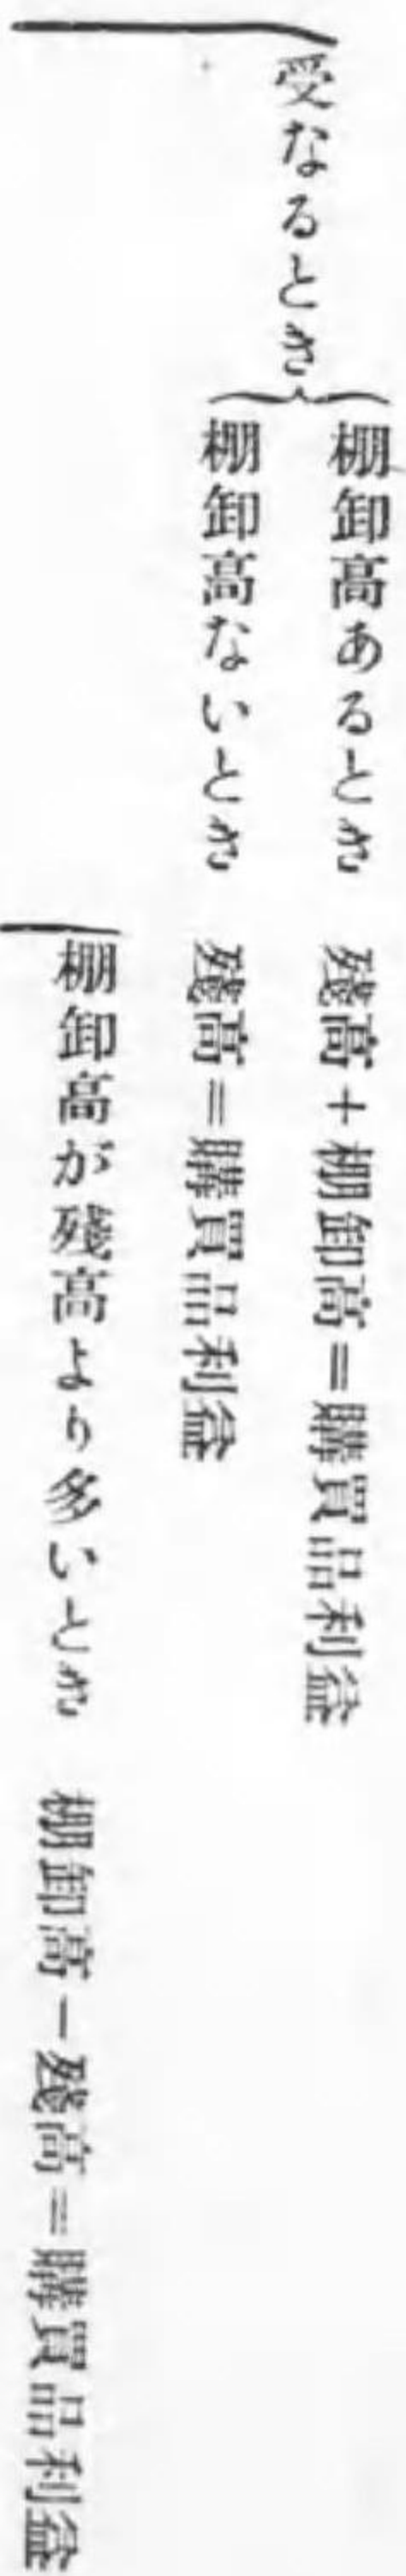 受なるとき
棚卸高あるとき　残高＋棚卸高＝購買品利益
棚卸高ないとき　残高＝購買品利益
棚卸高が残高より多いとき　棚卸高－残高＝購買品利益